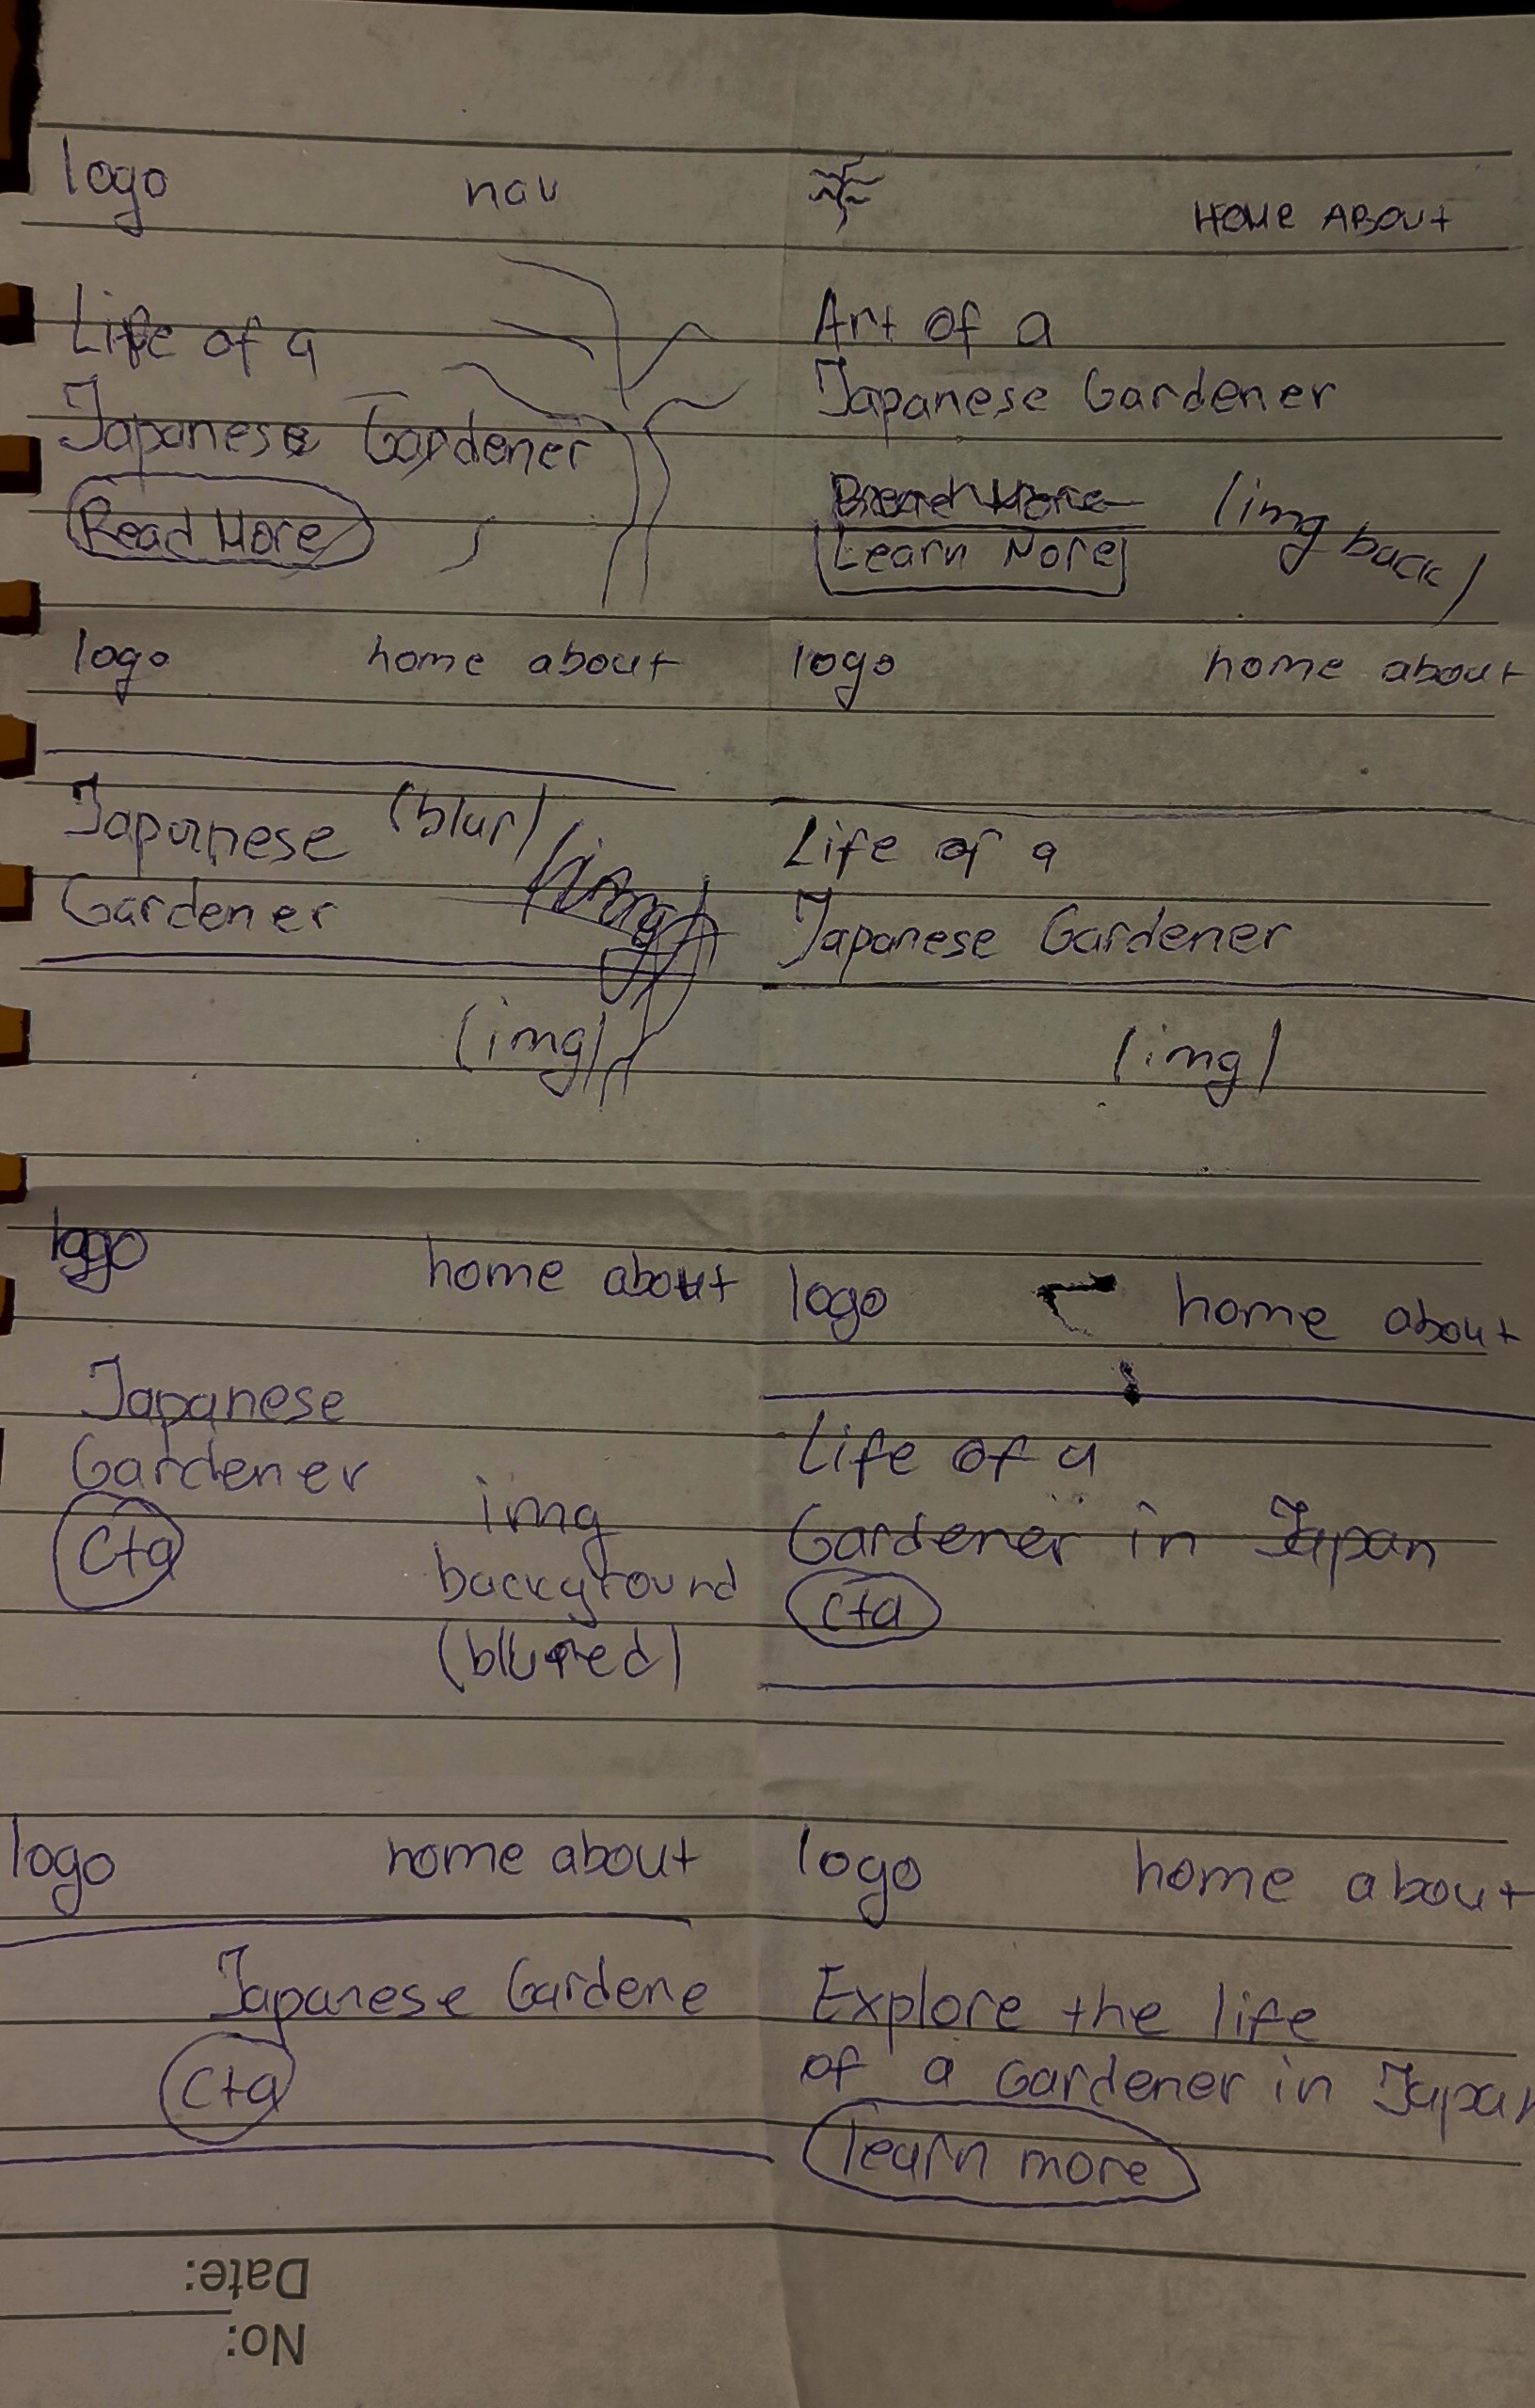 logo nav
Life of a
Japanese Gardener
Read More
HOME ABOUT
Art of a
Japanese Gardener
Learn More (img back)
logo home about
Japanese (blur)
Gardener
(img)
logo home about
Life of a
Japanese Gardener
(img)
logo home about
Japanese
Gardener
cta
img
background
(blured)
logo home about
Life of a
Gardener in Japan
cta
logo home about
Japanese Gardene
cta
logo home about
Explore the life
of a Gardener in Japan
learn more
Date:
No: